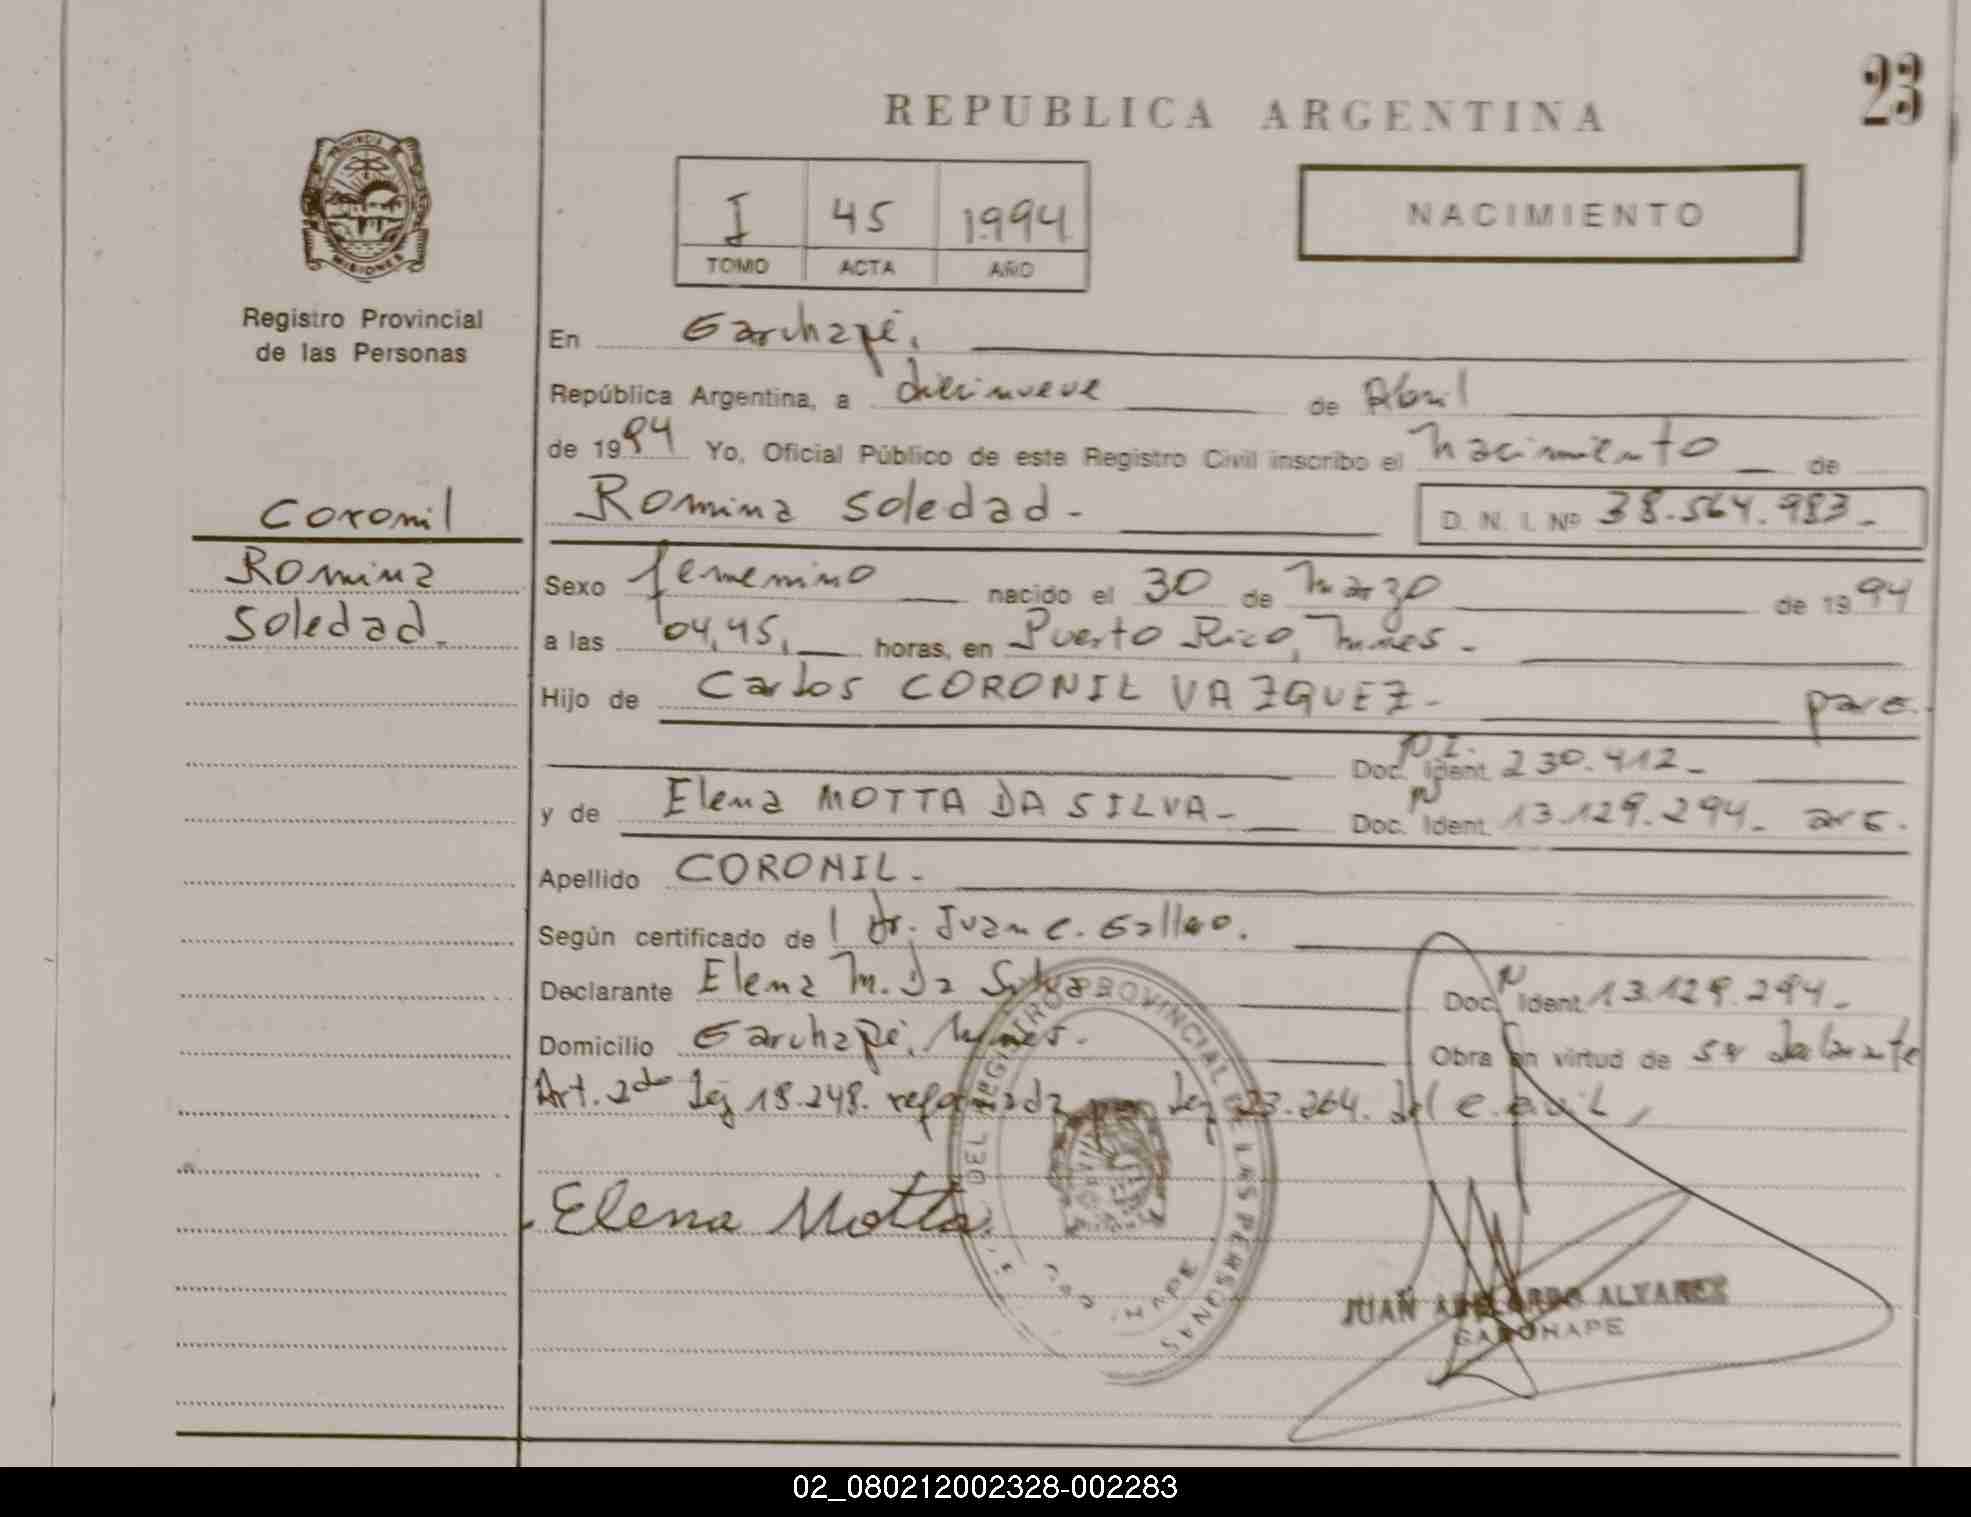 23
REPUBLICA ARGENTINA
PROVINCIA DE
MISIONES
Registro Provincial
de las Personas
I 45 1994
TOMO ACTA AÑO
NACIMIENTO
En Garuhapé,
República Argentina, a diecinueve de Abril
de 1994 Yo, Oficial Público de este Registro Civil inscribo el nacimiento de
Coronil
Romina Soledad.- D. N. I. Nº 38.564.983.-
Romina
Soledad.
Sexo femenino nacido el 30 de marzo de 1994
a las 04,45, horas, en Puerto Rico, Mnes.-
Hijo de Carlos CORONIL VAZQUEZ.- parg.
Doc. Ident. 230.412.-
y de Elena MOTTA DA SILVA.- Doc. Ident. 13.129.294.- arg.
Apellido CORONIL.-
Según certificado de Dr. Juan C. Galleo.
Declarante Elena M. Da Silva Doc. Ident. 13.129.294.-
Domicilio Garuhapé, Mnes.- Obra en virtud de ser declarante
Art. 2do Ley 18.248. reformada por Ley 23.264. del C. Civil,
DEL REGISTRO PROVINCIAL DE LAS PERSONAS
Elena Motta
JUAN ABELARDO ALVAREZ
GARUHAPE
02_080212002328-002283